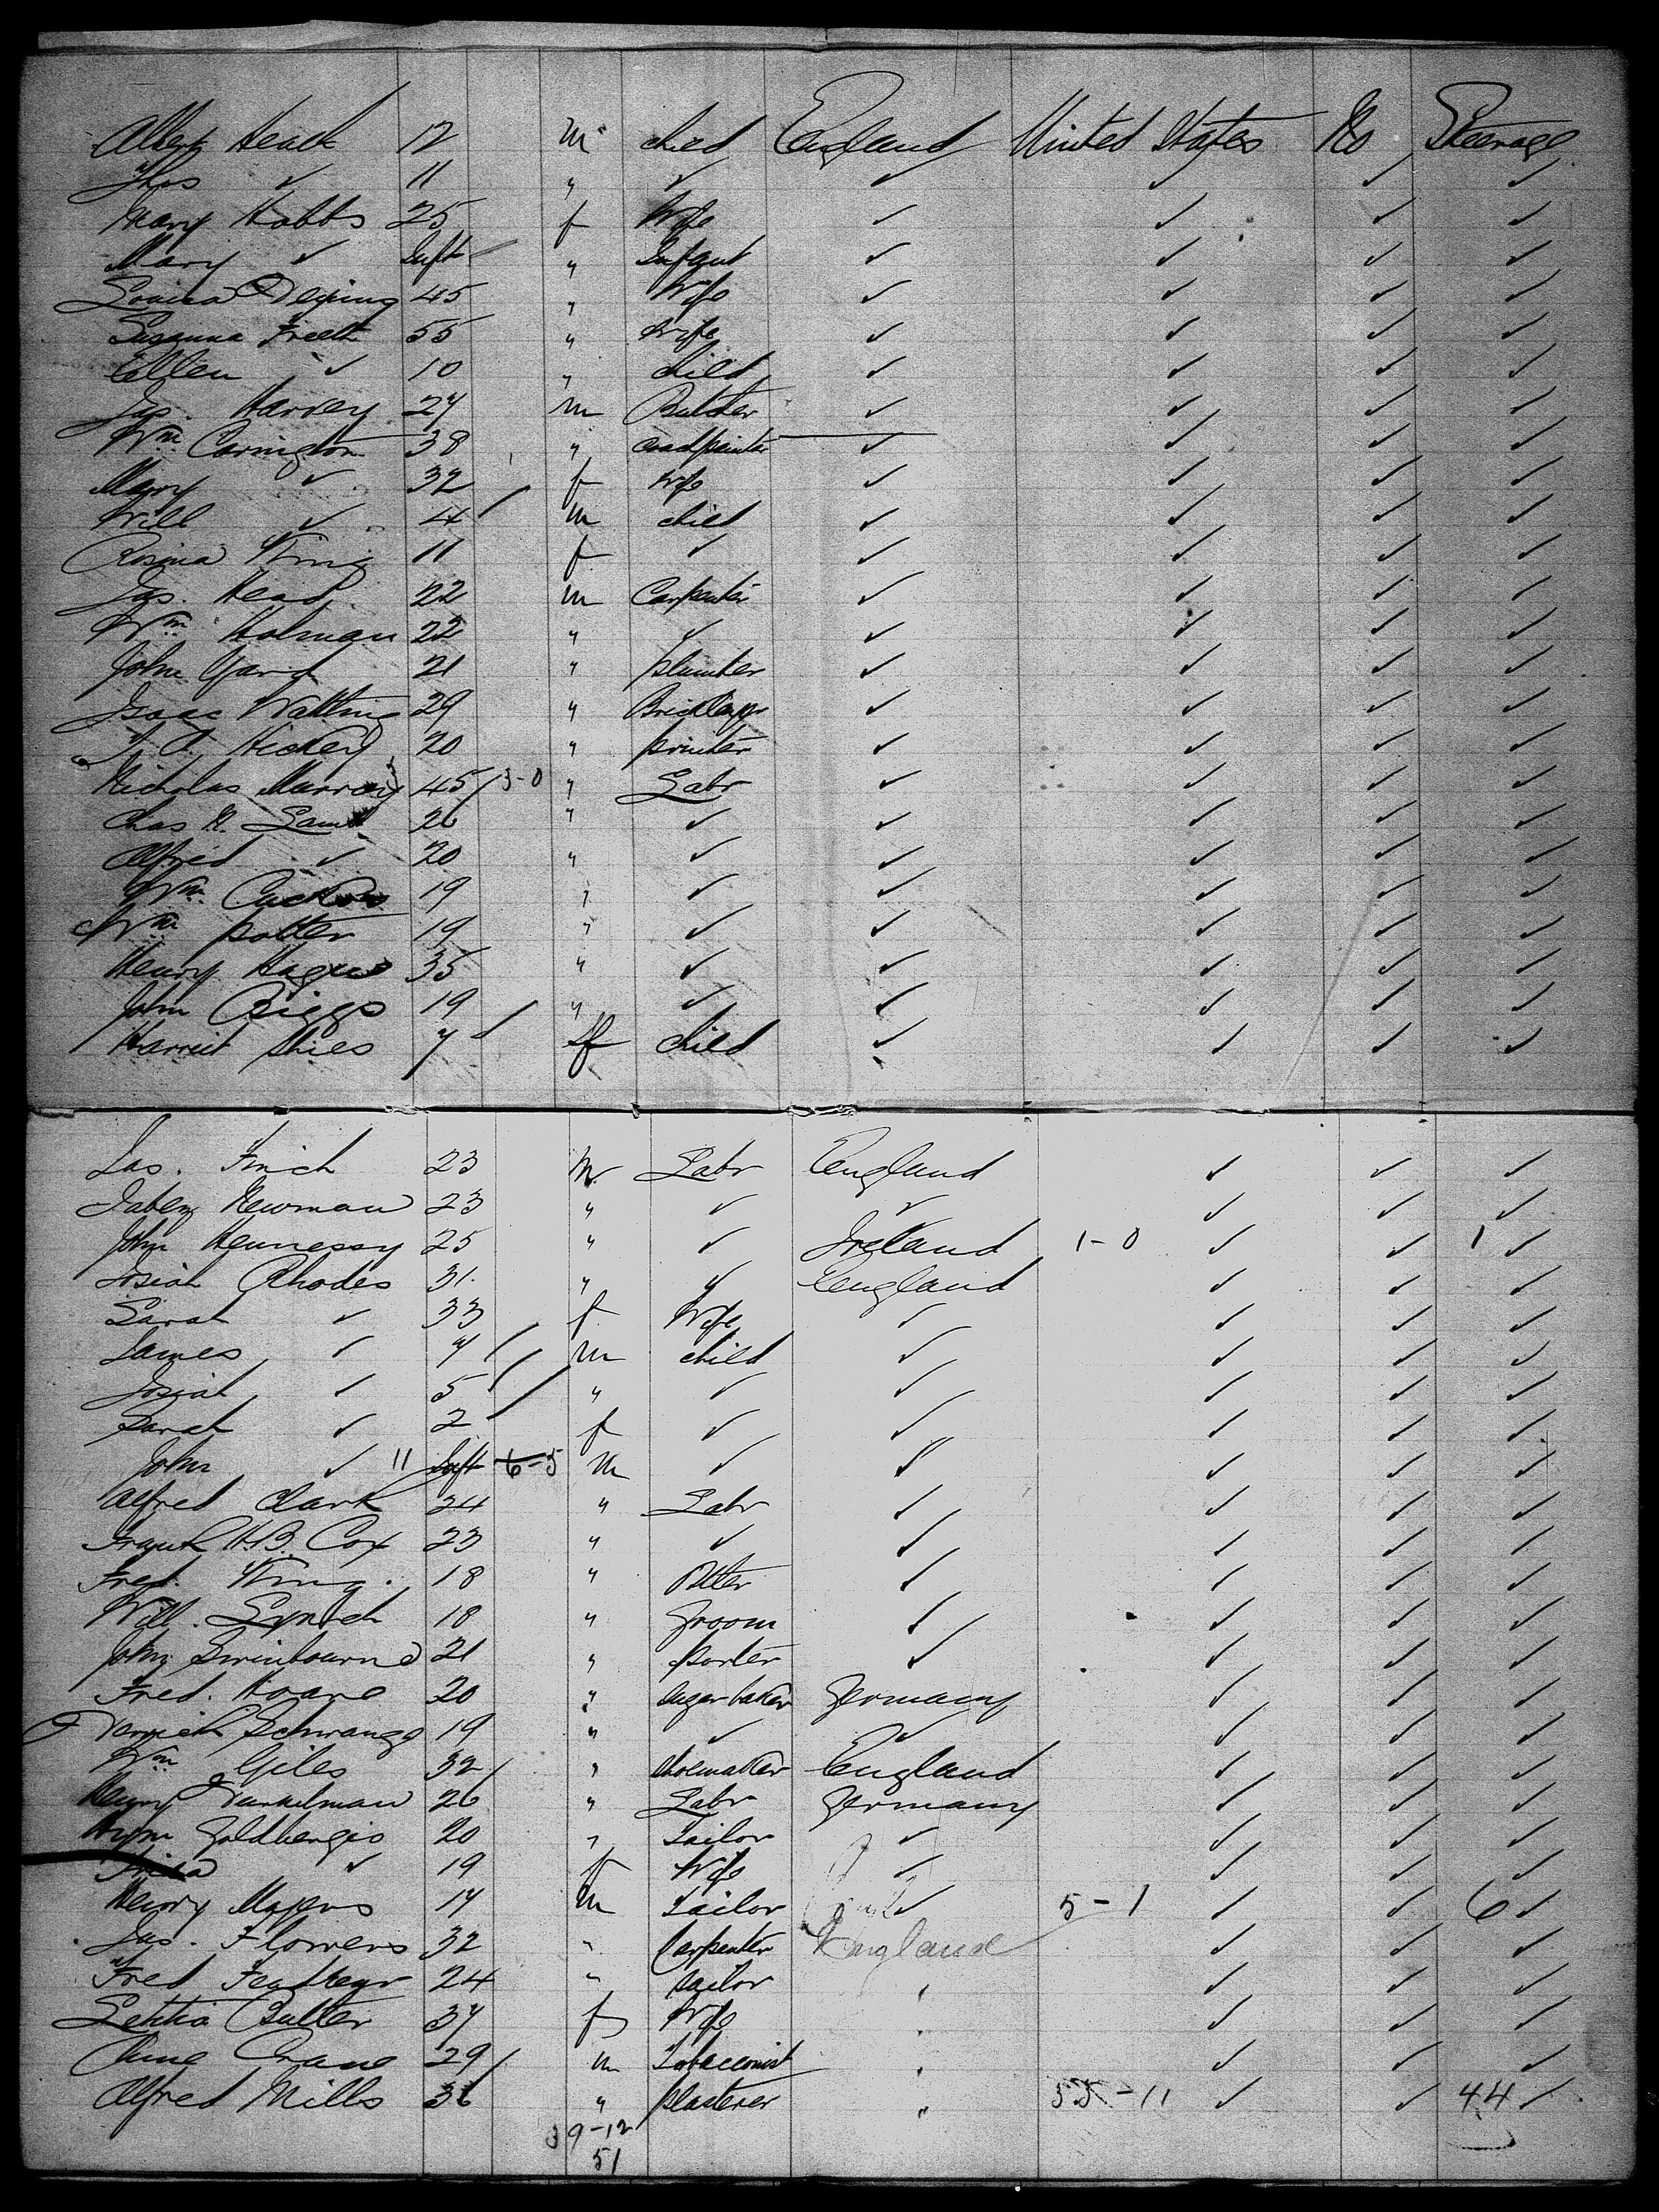 Albert Heath 12 m child England United States No Steerage
Thos ✓ 11 " ✓ ✓ ✓ ✓ ✓
Mary Hobbs 25 f Wife ✓ ✓ ✓ ✓
Mary ✓ Inft " Infant ✓ ✓ ✓ ✓
Louisa 45 " Wife ✓ ✓ ✓ ✓
Susanna Freeth 55 " Wife ✓ ✓ ✓ ✓
Ellen ✓ 10 " child ✓ ✓ ✓ ✓
Jas. Harvey 27 m Butcher ✓ ✓ ✓ ✓
Wm. Carington 38 " coachpainter ✓ ✓ ✓ ✓
Mary ✓ 32 f Wife ✓ ✓ ✓ ✓
Will ✓ 4 m child ✓ ✓ ✓ ✓
Rosina King 11 f ✓ ✓ ✓ ✓ ✓
Jas. Head 22 m Carpenter ✓ ✓ ✓ ✓
Wm. Holman 22 " ✓ ✓ ✓ ✓ ✓
John Yard 21 " plumber ✓ ✓ ✓ ✓
Isaac Watling 29 " Bricklayr ✓ ✓ ✓ ✓
Hickey 20 " printer ✓ ✓ ✓ ✓
Nicholas Murray 45 / 3-0 " Labr ✓ ✓ ✓ ✓
Chas H. 26 " ✓ ✓ ✓ ✓ ✓
Alfred ✓ 20 " ✓ ✓ ✓ ✓ ✓
Wm. 19 " ✓ ✓ ✓ ✓ ✓
Wm. Potter 19 " ✓ ✓ ✓ ✓ ✓
Henry Hague 35 " ✓ ✓ ✓ ✓ ✓
John Biggs 19 " ✓ ✓ ✓ ✓ ✓
Harriet 7 f child ✓ ✓ ✓ ✓
Jas. Finch 23 m. Labr England ✓ ✓ ✓
Jabez Newman 23 " ✓ ✓ ✓ ✓ ✓
John Hennessy 25 " ✓ Ireland 1-0 ✓ ✓ 1 ✓
Josiah Rhodes 31 " ✓ England ✓ ✓ ✓
Sarah ✓ 33 f Wife ✓ ✓ ✓ ✓
James ✓ 7 m child ✓ ✓ ✓ ✓
Josiah ✓ 5 " ✓ ✓ ✓ ✓ ✓
Sarah ✓ 2 f ✓ ✓ ✓ ✓ ✓
John ✓ 11 Inft 6-5 m ✓ ✓ ✓ ✓ ✓
Alfred Clark 24 " Labr ✓ ✓ ✓ ✓
Frank H.B. Cox 23 " ✓ ✓ ✓ ✓ ✓
Fred. King. 18 " Potter ✓ ✓ ✓ ✓
Will. Lynch 18 " Groom ✓ ✓ ✓ ✓
John Swinbourne 21 " porter ✓ ✓ ✓ ✓
Fred. Hoare 20 " sugar baker Germany ✓ ✓ ✓
19 " ✓ ✓ ✓ ✓ ✓
Wm. Giles 32 " shoemaker England ✓ ✓ ✓
Henry 26 " Labr Germany ✓ ✓ ✓
20 " Tailor ✓ ✓ ✓ ✓
✓ 19 f Wife ✓ ✓ ✓ ✓
Henry 17 m Tailor ✓ 5-1 ✓ ✓ 6 ✓
Jas. Flowers 32 " Carpenter England ✓ ✓ ✓
Fred 24 " sailor " ✓ ✓ ✓
Letitia Butler 37 f Wife " ✓ ✓ ✓
Crane 29 m Tobacconist " ✓ ✓ ✓
Alfred Mills 36 " plasterer " 55-11 ✓ ✓ 44 ✓
39-12
51